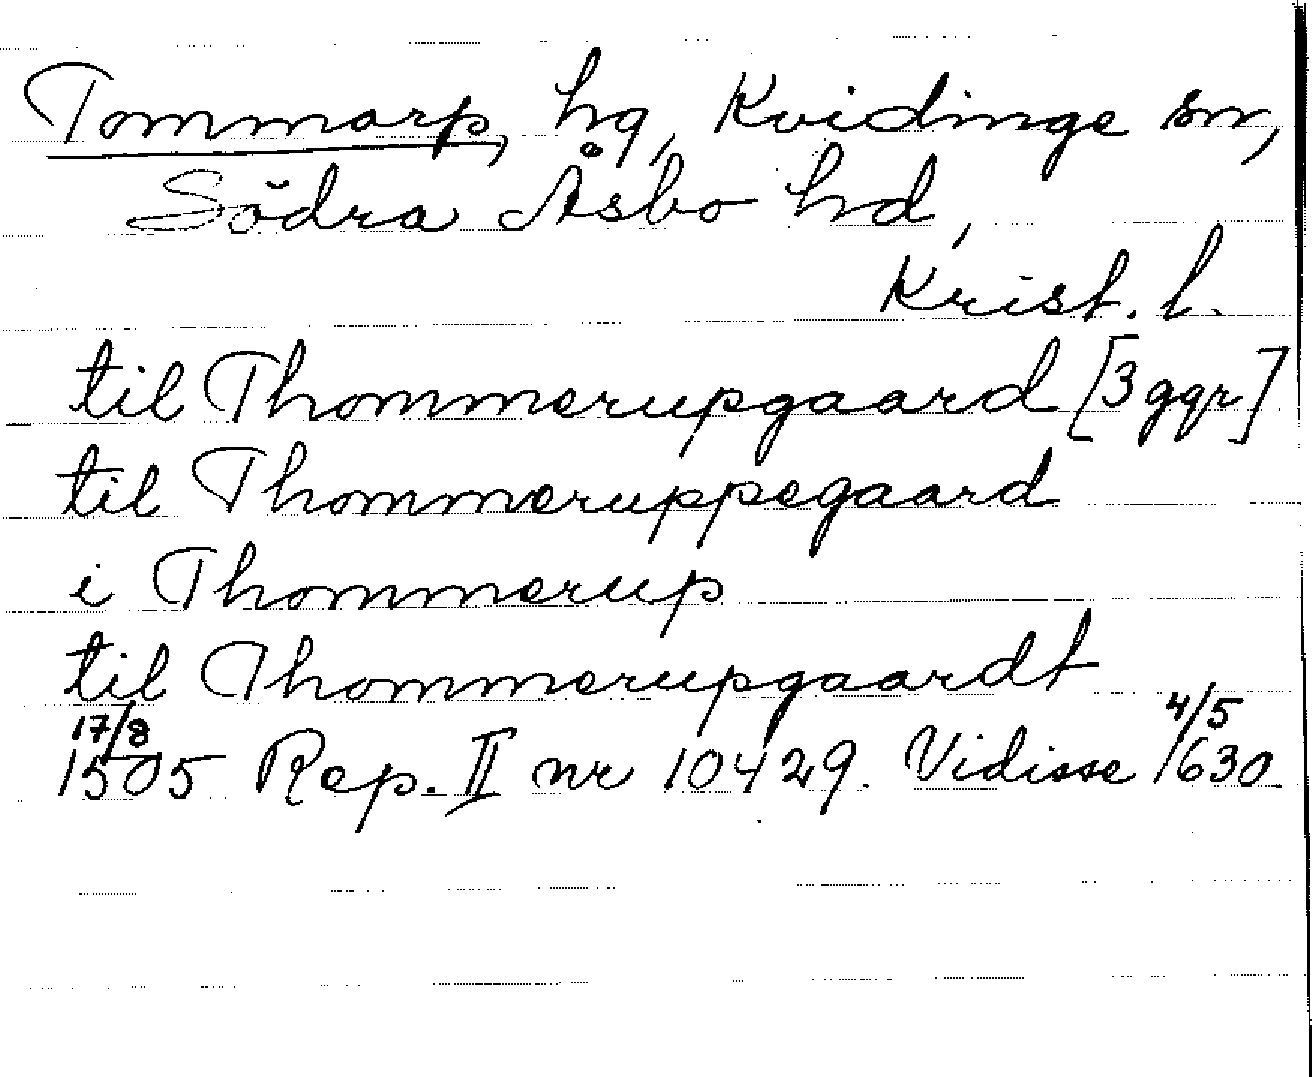 Tommarp, hg, Kvidinge sn,
Södra Åsbo hd,
Krist. l.
til Thommerupgaard [3 ggr]
til Thommeruppegaard
i Thommerup
til Thommerupgaardt
17/8 1505 Rep. II nr 10429. Vidisse 4/5 1630